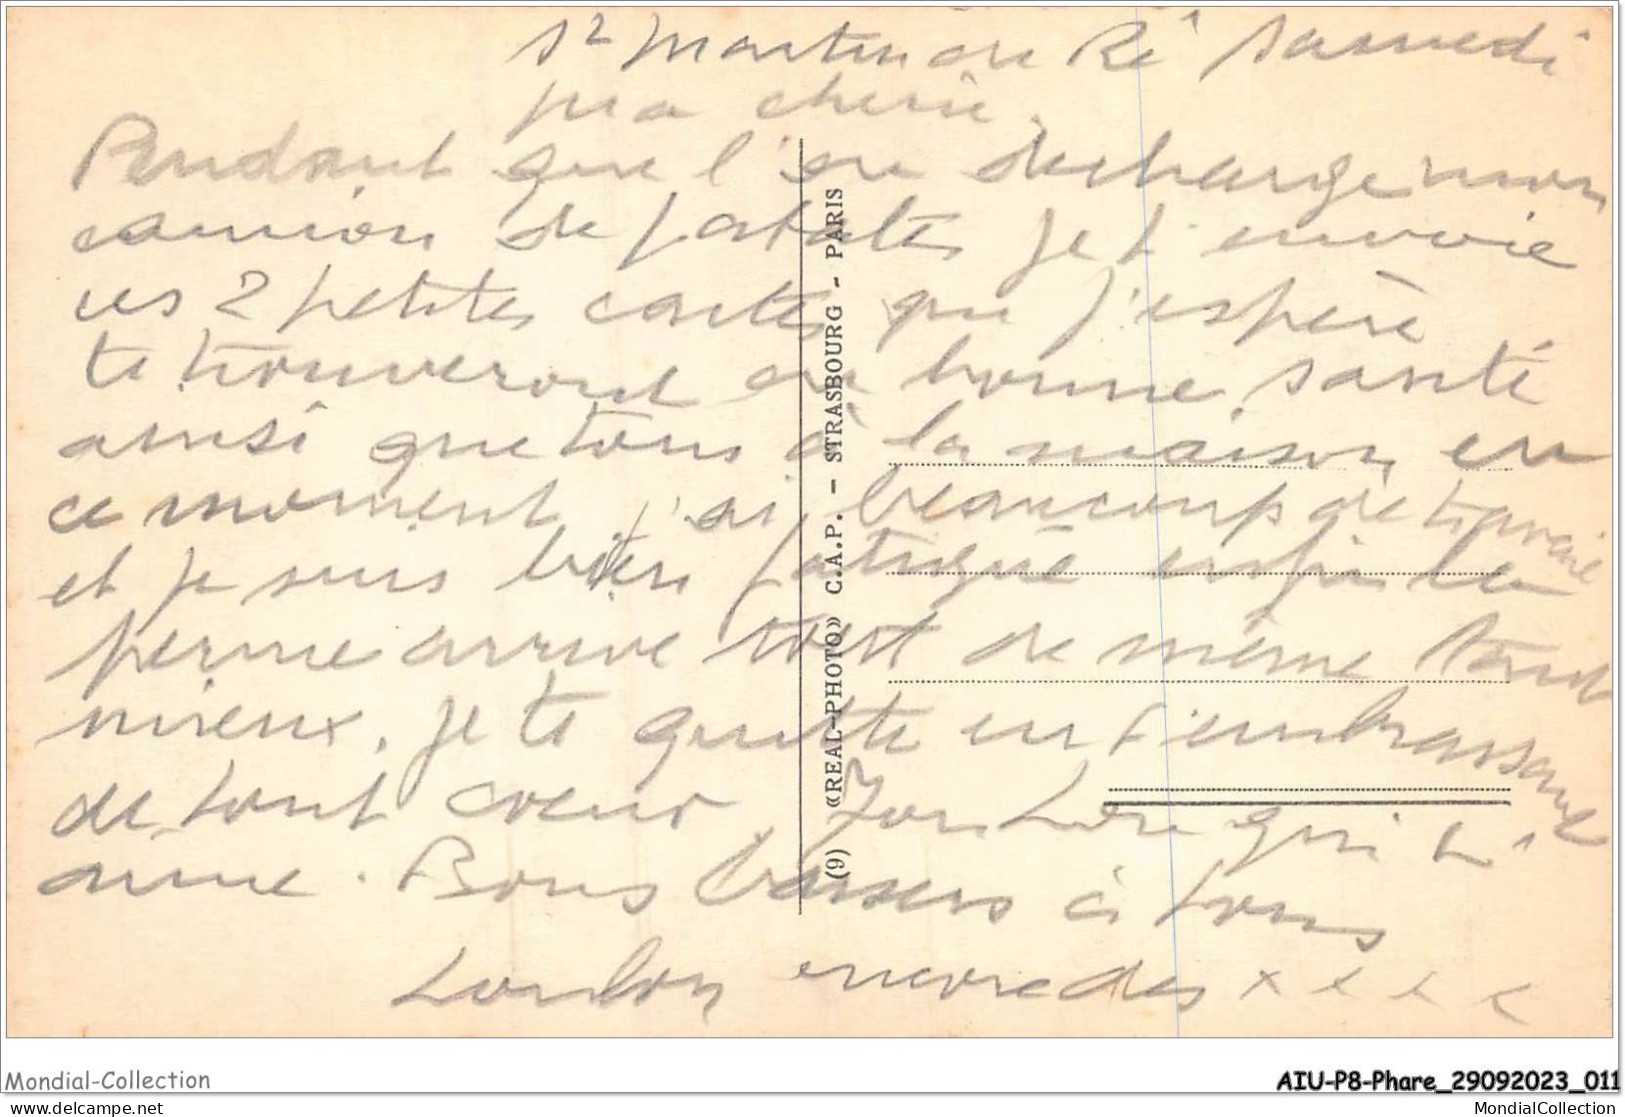 St Martin de Ré Samedi
Ma chérie,
Pendant que l'on décharge mon
camion de patates je t'envoie
ces 2 petites cartes que j'espère
te trouveront en bonne santé
ainsi que tous à la maison, en
ce moment j'ai beaucoup de travaille
et je suis bien fatigué enfin la
perme arrive tout de même tant
mieux. Je te quitte en t'embrassant
de tout coeur Ton qui t'
aime. Bons baisers à tous
encore des x x x x
(9) «REAL-PHOTO» C.A.P. - STRASBOURG - PARIS
Mondial-Collection
AIU-P8-Phare_29092023_011
delcampe.net
MondialCollection